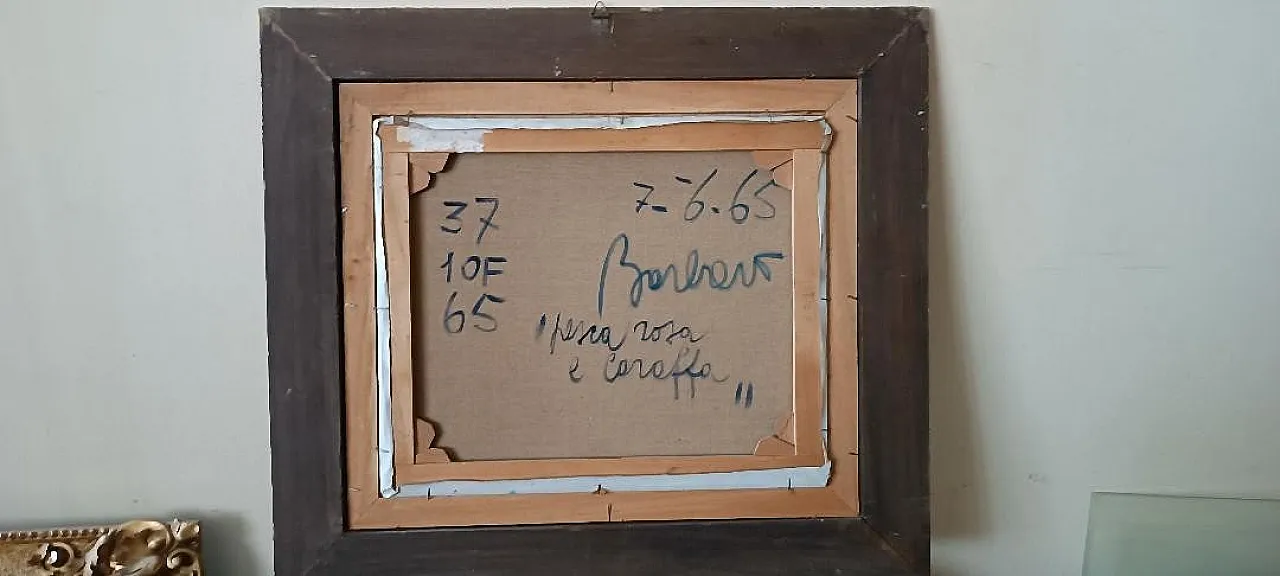 37
10F
65
7-6-65
"pesca rosa
e Caraffa"